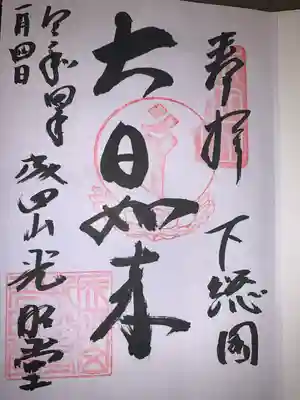 奉拝
下総国
大日如来
成田山光明堂
令和四年
一月四日